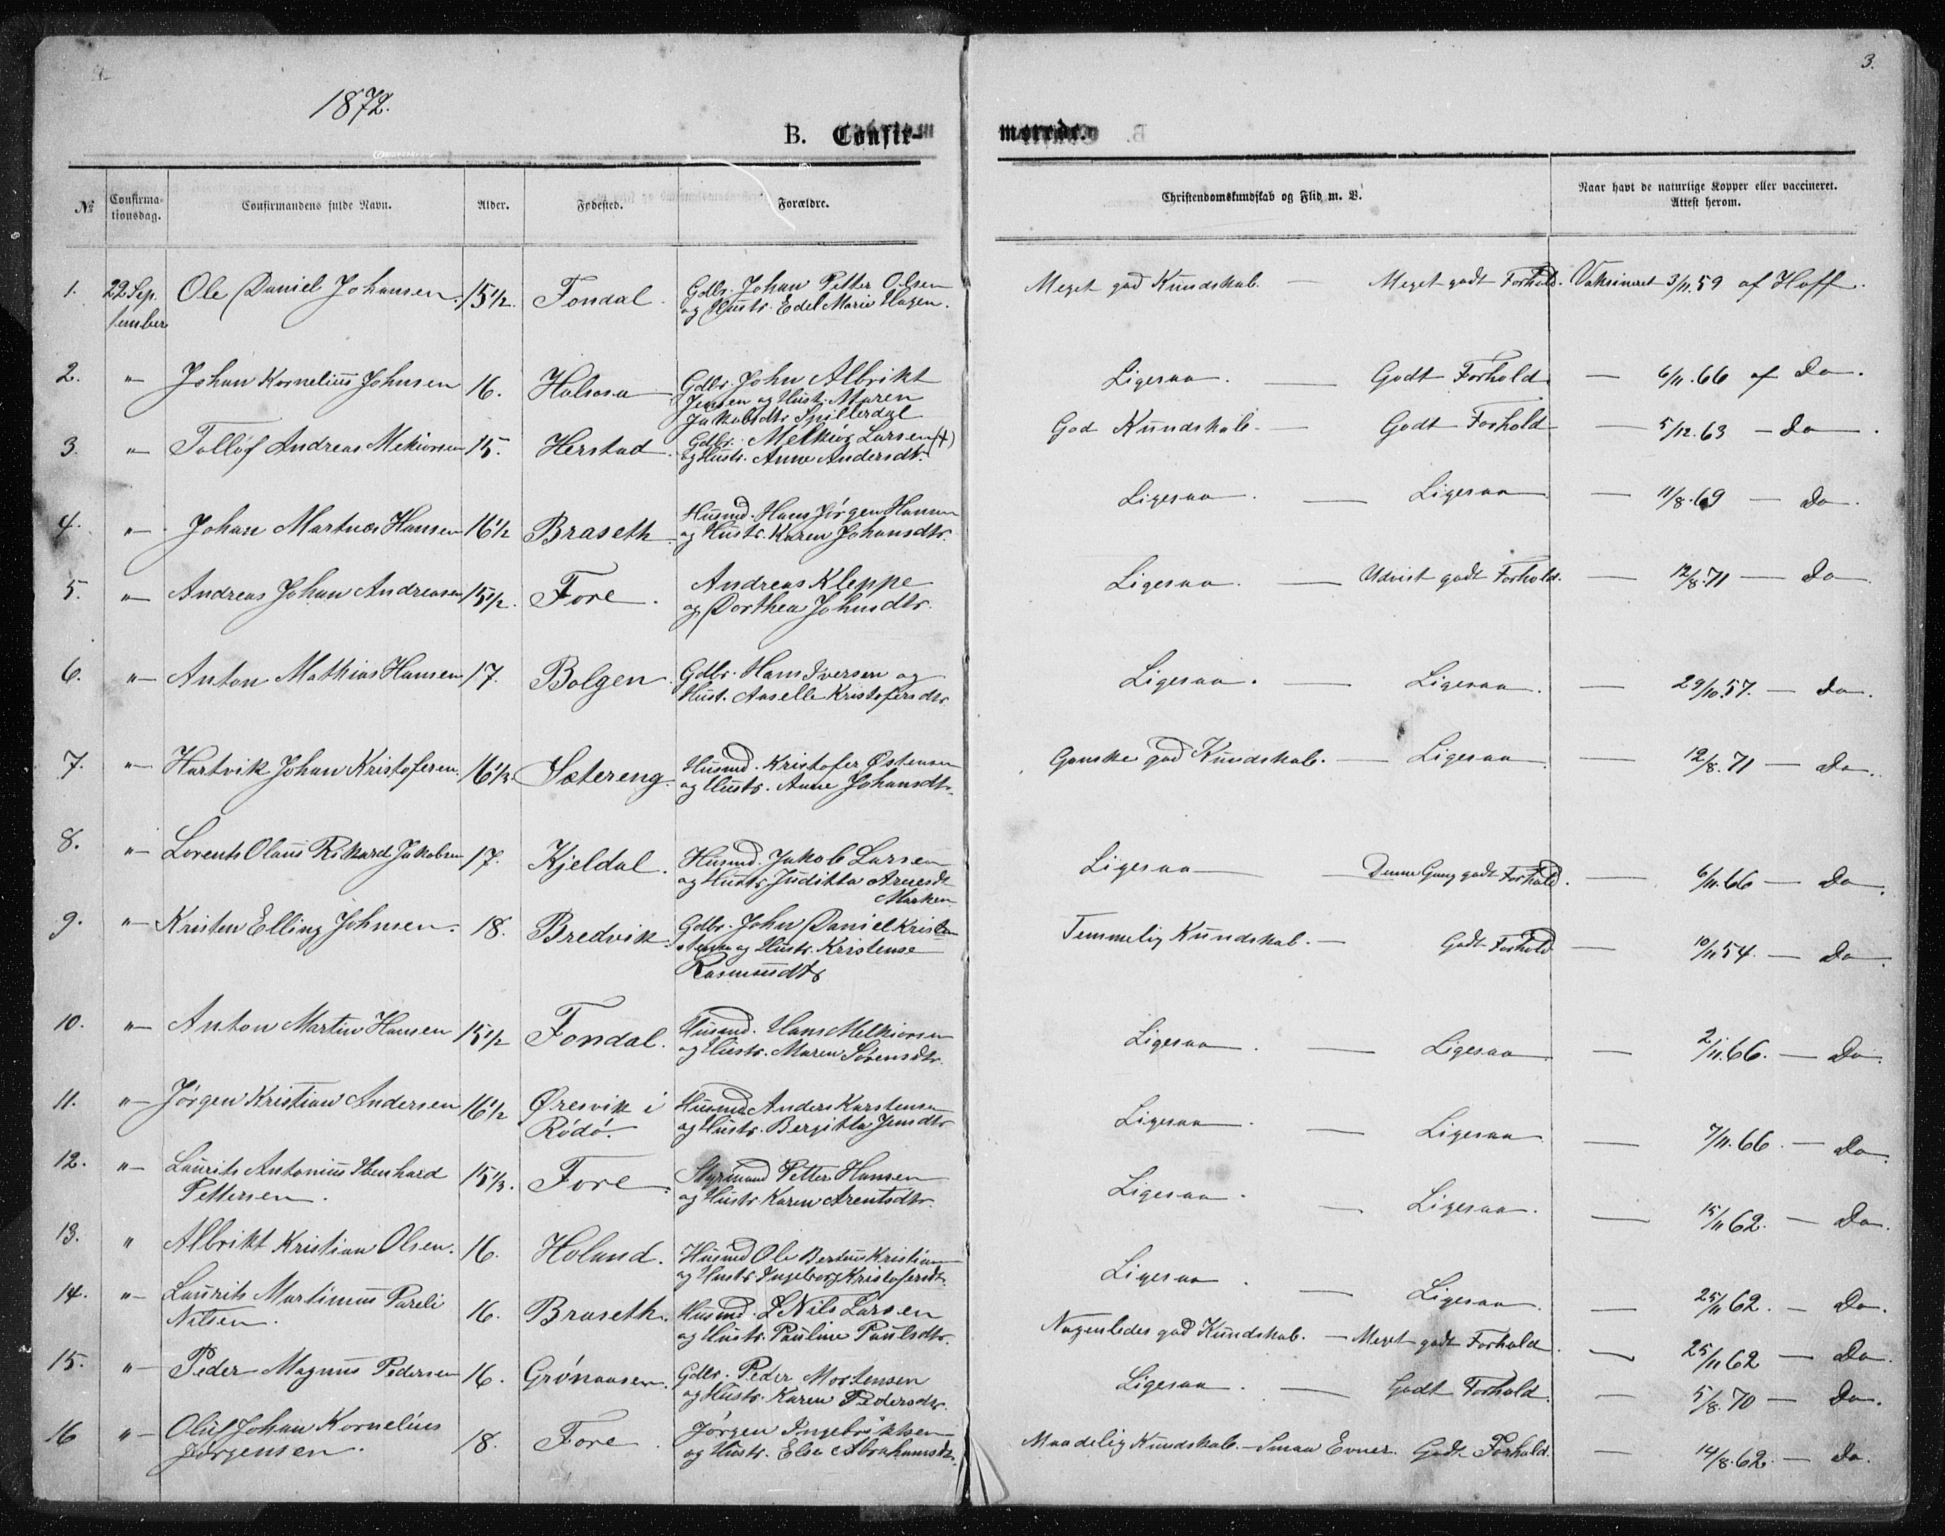 3.
1872.
B. Confir-
merede.
№
Confirma-
tionsdag.
Confirmandens fulde Navn.
Alder.
Fødested.
Forældre.
Christendomskundskab og Flid m. V.
Naar havt de naturlige Kopper eller vaccineret.
Attest herom.
1. 22 Sep. Ole Daniel Johansen. 15 1/2 Fondal. Gdbr. Johan Petter Olsen Meget god Kundskab. — Meget godt Forhold. Vaksineret 3/11.59 af Hoff.
tember og Hustr. Edel Marie Hagen.
2. "— Johan Kornelius Johnsen 16. Halsaa Gdbr. John Albrikt Ligesaa. — Godt Forhold — 6/11.66 af Do.
Jensen og Hust. Maren
Jakobsdtr. Spilderdal
3. "— Tollöf Andreas Mekiorsen 15. Herstad. Gdbr. Melkiør Larsen (†) God Kundskab. — Godt Forhold — 5/12.63 — do —.
og Hustr. Anne Andersdtr.
4. "— Johan Martnes Hansen 16 1/2 Braseth. Husmd. Hans Jørgen Hansen Ligesaa. — Ligesaa — 11/8.69 — Do.
og Hustr. Karen Johansdtr.
5. "— Andreas Johan Andreasen 15 1/2. Fore. Andreas Kleppe Ligesaa. — Udvist godt Forhold. — 12/8.71 — Do
og Dorthea Johnsdtr.
6. "— Anton Mathias Hansen 17. Bolgen. Gdbr. Hans Iversen og Ligesaa. — Ligesaa. — 29/10.57. — Do.
Hust. Aaselle Kristofersdtr.
7. "— Hartvik Johan Kristofersen. 16 1/3 Sætereng. Husmd. Kristofer Østensen Ganske god Kundskab. — Ligesaa. — 12/8.71 — Do.
og Hustr. Anne Johansdtr.
8. "— Lorents Olaus Rikard Jakobsen 17. Kjeldal. Husmd. Jakob Larsen Ligesaa — Denne Gang godt Forhold. — 6/11.66 — Do.
og Hustr. Juditta Arnesdt
Marken
9. "— Kristen Elling Johnsen. 18. Bredvik. Gdbr. John Daniel Kristen Temmelig Kundskab. — Godt Forhold — 10/11.54. — Do.
og Hustr. Kristense
Rasmusdtr
10. "— Anton Martin Hansen 15 1/2 Fondal. Husmd. Hans Melkiorsen Ligesaa. — Ligesaa — 2/11.66. — Do.
og Hustr. Maren Sørensdtr.
11. "— Jørgen Kristian Andersen 16 1/2 Øresvik i Husmd. Anders Karstensen Ligesaa. — Ligesaa — 7/11.66. — Do.
Rødø. og Hustr. Bergitta Jensdtr
12. "— Laurits Antonius Ebenhard 15 1/3. Fore. Styrmand Petter Hansen Ligesaa. — Ligesaa. — 15/11 62. — Do.
Pettersen. og Hustr. Karen Arentsdtr.
13. " Albrikt Kristian Olsen. 16. Holand. Husmd Ole Bertius Kristian Ligesaa. — Ligesaa. — 25/11 62. — Do.
og Hustr. Ingeborg Kristofersdt.
14. "— Laurits Martinus Pareli 16. Braseth. Husmd. Nils Larsen Nogenledes god Kundskab. — Meget godt Forhold. — 25/11 62 — Do.
Nilsen. og Hustr. Pauline Paulsdtr.
15. "— Peder Magnus Pedersen 16. Grønaasen. Gdbr. Peder Mortensen Ligesaa. — Godt Forhold. — 5/8.70 — Do.
og Hustr. Karen Pedersdtr.
16 "— Oluf Johan Kornelius 18. Fore. Jørgen Ingebriktsen Maadelig Kundskab. — Smaa Evner. Godt Forhold. — 14/8.62. — Do.
Jørgensen. og Hustr. Elsa Abrahamsdt.